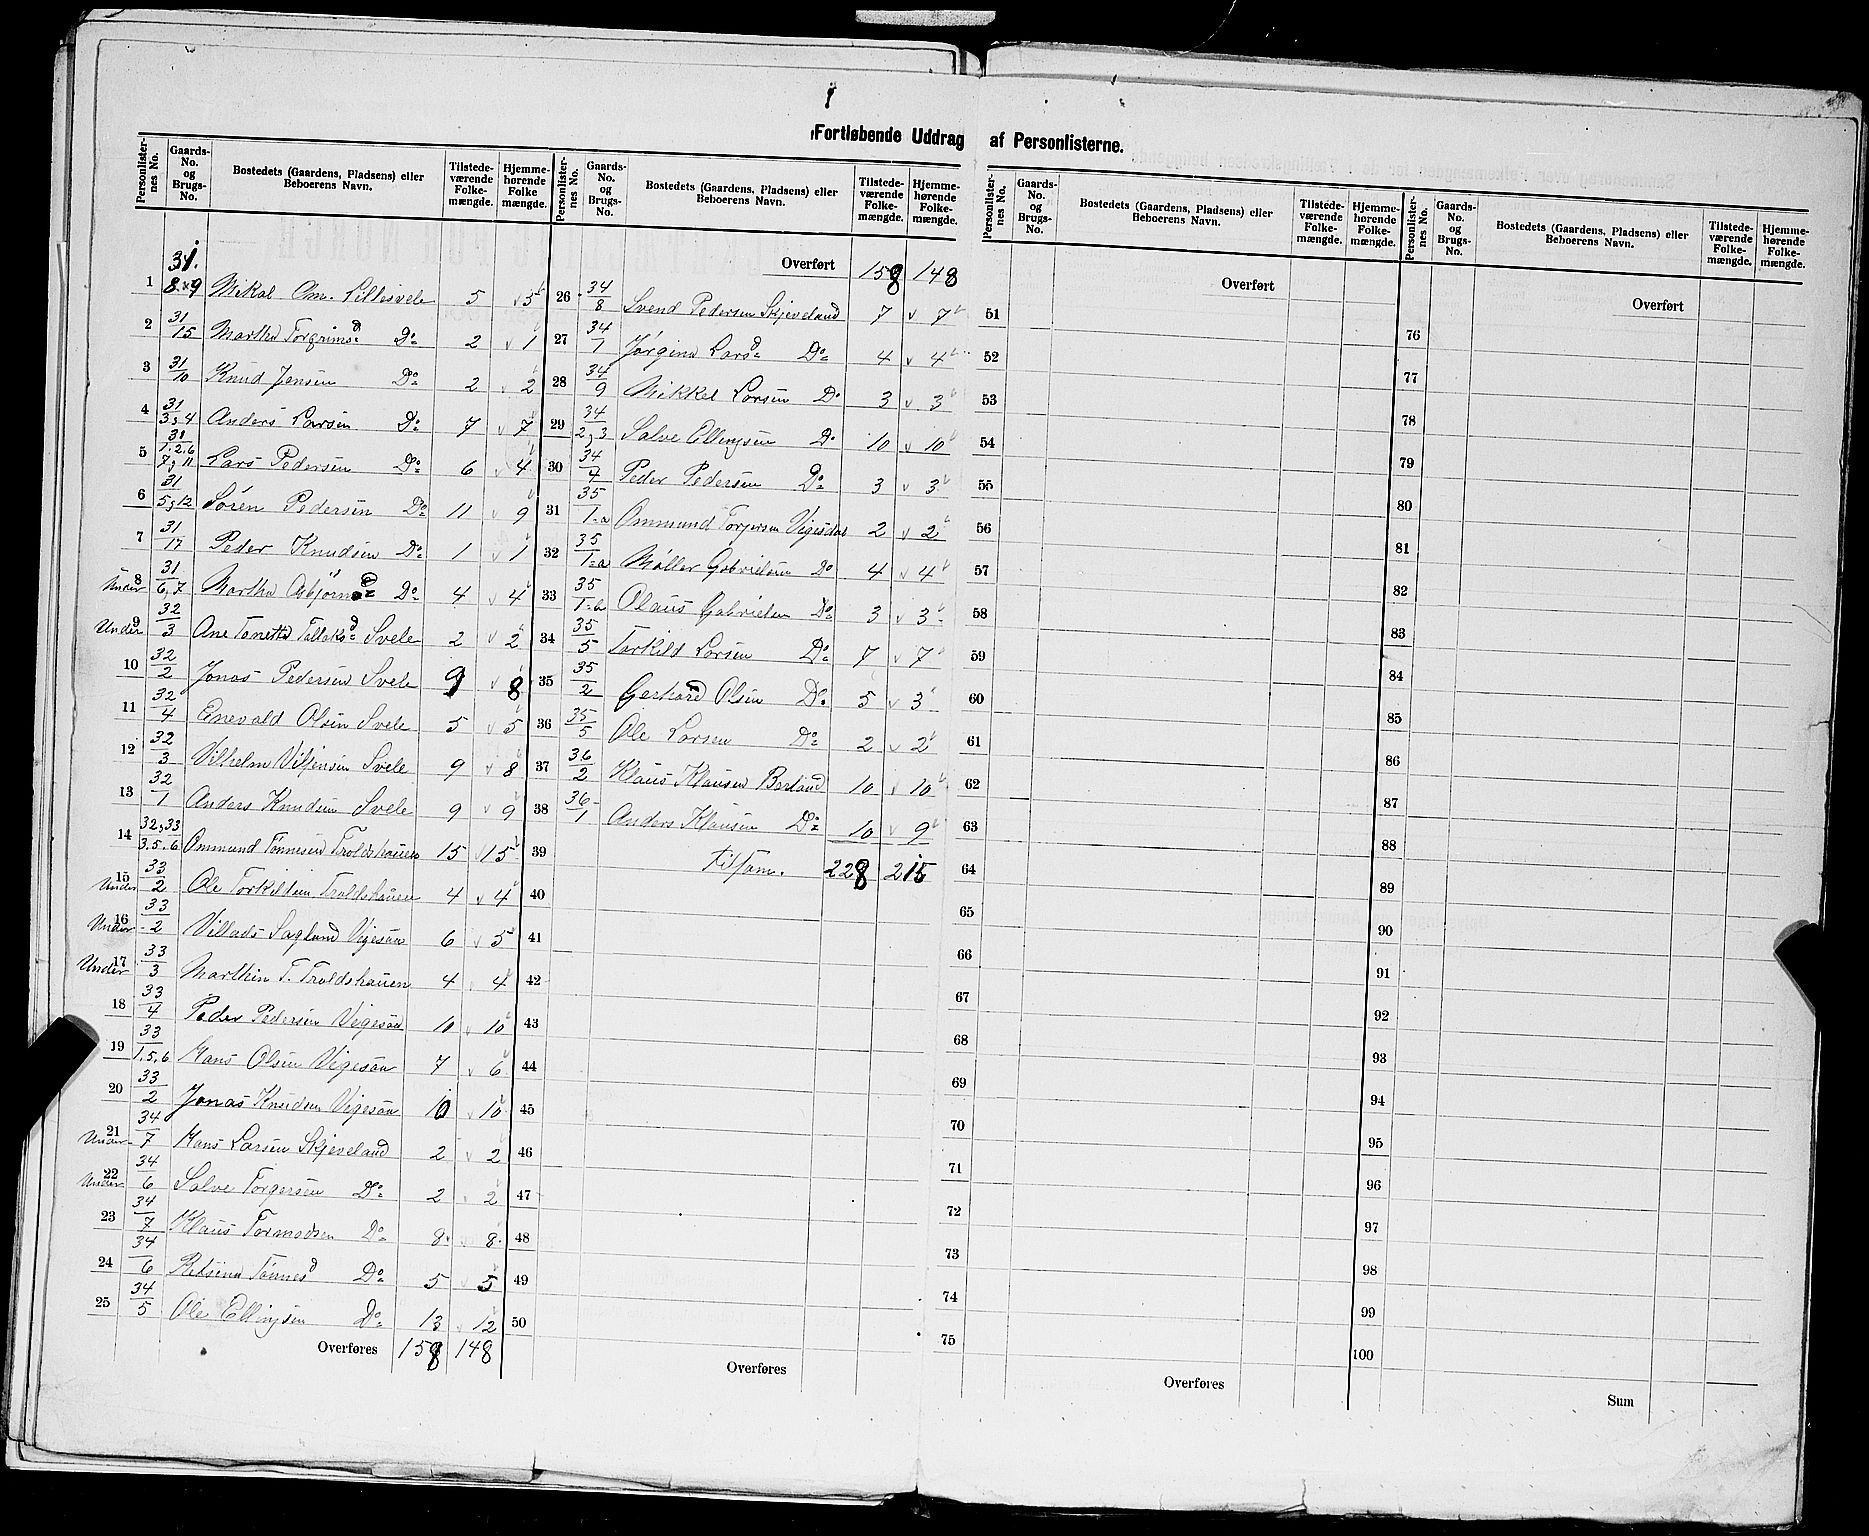 Fortløbende Uddrag af Personlisterne.
Personlister-nes No. | Gaards-No. og Brugs-No. | Bostedets (Gaardens, Pladsens) eller Beboerens Navn. | Tilstede-værende Folke-mængde. | Hjemme-hørende Folke mængde.
1 31. 8.&9 Mikal Om. Lillesvele 5 v 5
2 31/15 Martha Torgrimsd Do 2 v 1
3 31/10 Knud Jensen Do 2 v 2
4 31/3,4 Anders Larsen Do 7 v 7
5 31/1.2.6 7,11 Lars Pedersen Do 6 v 4
6 31/5,12 Sören Pedersen Do 11 v 9
7 31/17 Peder Knudsen Do 1 v 1
8 Under 31/6,7 Martha Asbjörnsd Do 4 v 4
9 Under 32/3 Ane Tonette Tallaksd Svele 2 v 2
10 32/2 Jonas Pedersen Svele 9 v 8
11 32/4 Enevald Olsen Svele 5 v 5
12 32/3 Vilhelm Vilfensen Svele 9 v 8
13 32/1 Anders Knudsen Svele 9 v 9
14 32,33/3.5.6 Ommund Tönnesen Troldshauen 15 v 15
15 Under 33/2 Ole Torkildsen Troldshauen 4 v 4
16 Under 33/2 Villads Sagland Vigesaa 6 v 5
17 Under 33/3 Marthin T. Troldshauen 4 4
18 33/4 Peder Pedersen Vigesaa 10 v 10
19 33/1.5.6 Hans Olsen Vigesaa 7 v 6
20 33/2 Jonas Knudsen Vigesaa 10 v 10
21 Under 34/7 Hans Larsen Skjeveland 2 v 2
22 Under 34/6 Salve Torgersen Do 2 v 2
23 34/7 Klaus Tormodsen Do 8 8
24 34/6 Retsina Tönnesd Do 5 v 5
25 34/5 Ole Ellingsen Do 13 v 12
Overføres 158 148
Personlister-nes No. | Gaards-No. og Brugs-No. | Bostedets (Gaardens, Pladsens) eller Beboerens Navn. | Tilstede-værende Folke-mængde. | Hjemme-hørende Folke-mængde.
Overført 158 148
26 34/8 Svend Pedersen Skjeveland 7 v 7
27 34/1 Jörgine Larsd Do 4 v 4
28 34/9 Mikkel Larsen Do 3 v 3
29 34/2,3 Salve Ellingsen Do 10 v 10
30 34/4 Peder Pedersen Do 3 v 3
31 35/1-a Ommund Torgersen Vigesdal 2 v 2
32 35/1-a Møller Gabrielsen Do 4 v 4
33 35/1-b Olaus Gabrielsen Do 3 v 3
34 35/5 Torkild Larsen Do 7 v 7
35 35/2 Gerhard Olsen Do 5 v 3
36 35/5 Ole Larsen Do 2 v 2
37 36/2 Klaus Klausen Berland 10 v 10
38 36/1 Anders Klausen Do 10 v 9
39 tilsam. 228 215
40
41
42
43
44
45
46
47
48
49
50
Overføres
Personlister-nes No. | Gaards-No. og Brugs-No. | Bostedets (Gaardens, Pladsens) eller Beboerens Navn. | Tilstede-værende Folke-mængde. | Hjemme-hørende Folke-mængde.
Overført
51
52
53
54
55
56
57
58
59
60
61
62
63
64
65
66
67
68
69
70
71
72
73
74
75
Overføres
Personlister-nes No. | Gaards-No. og Brugs-No. | Bostedets (Gaardens, Pladsens) eller Beboerens Navn. | Tilstede-værende Folke-mængde. | Hjemme-hørende Folke-mængde.
Overført
76
77
78
79
80
81
82
83
84
85
86
87
88
89
90
91
92
93
94
95
96
97
98
99
100
Sum